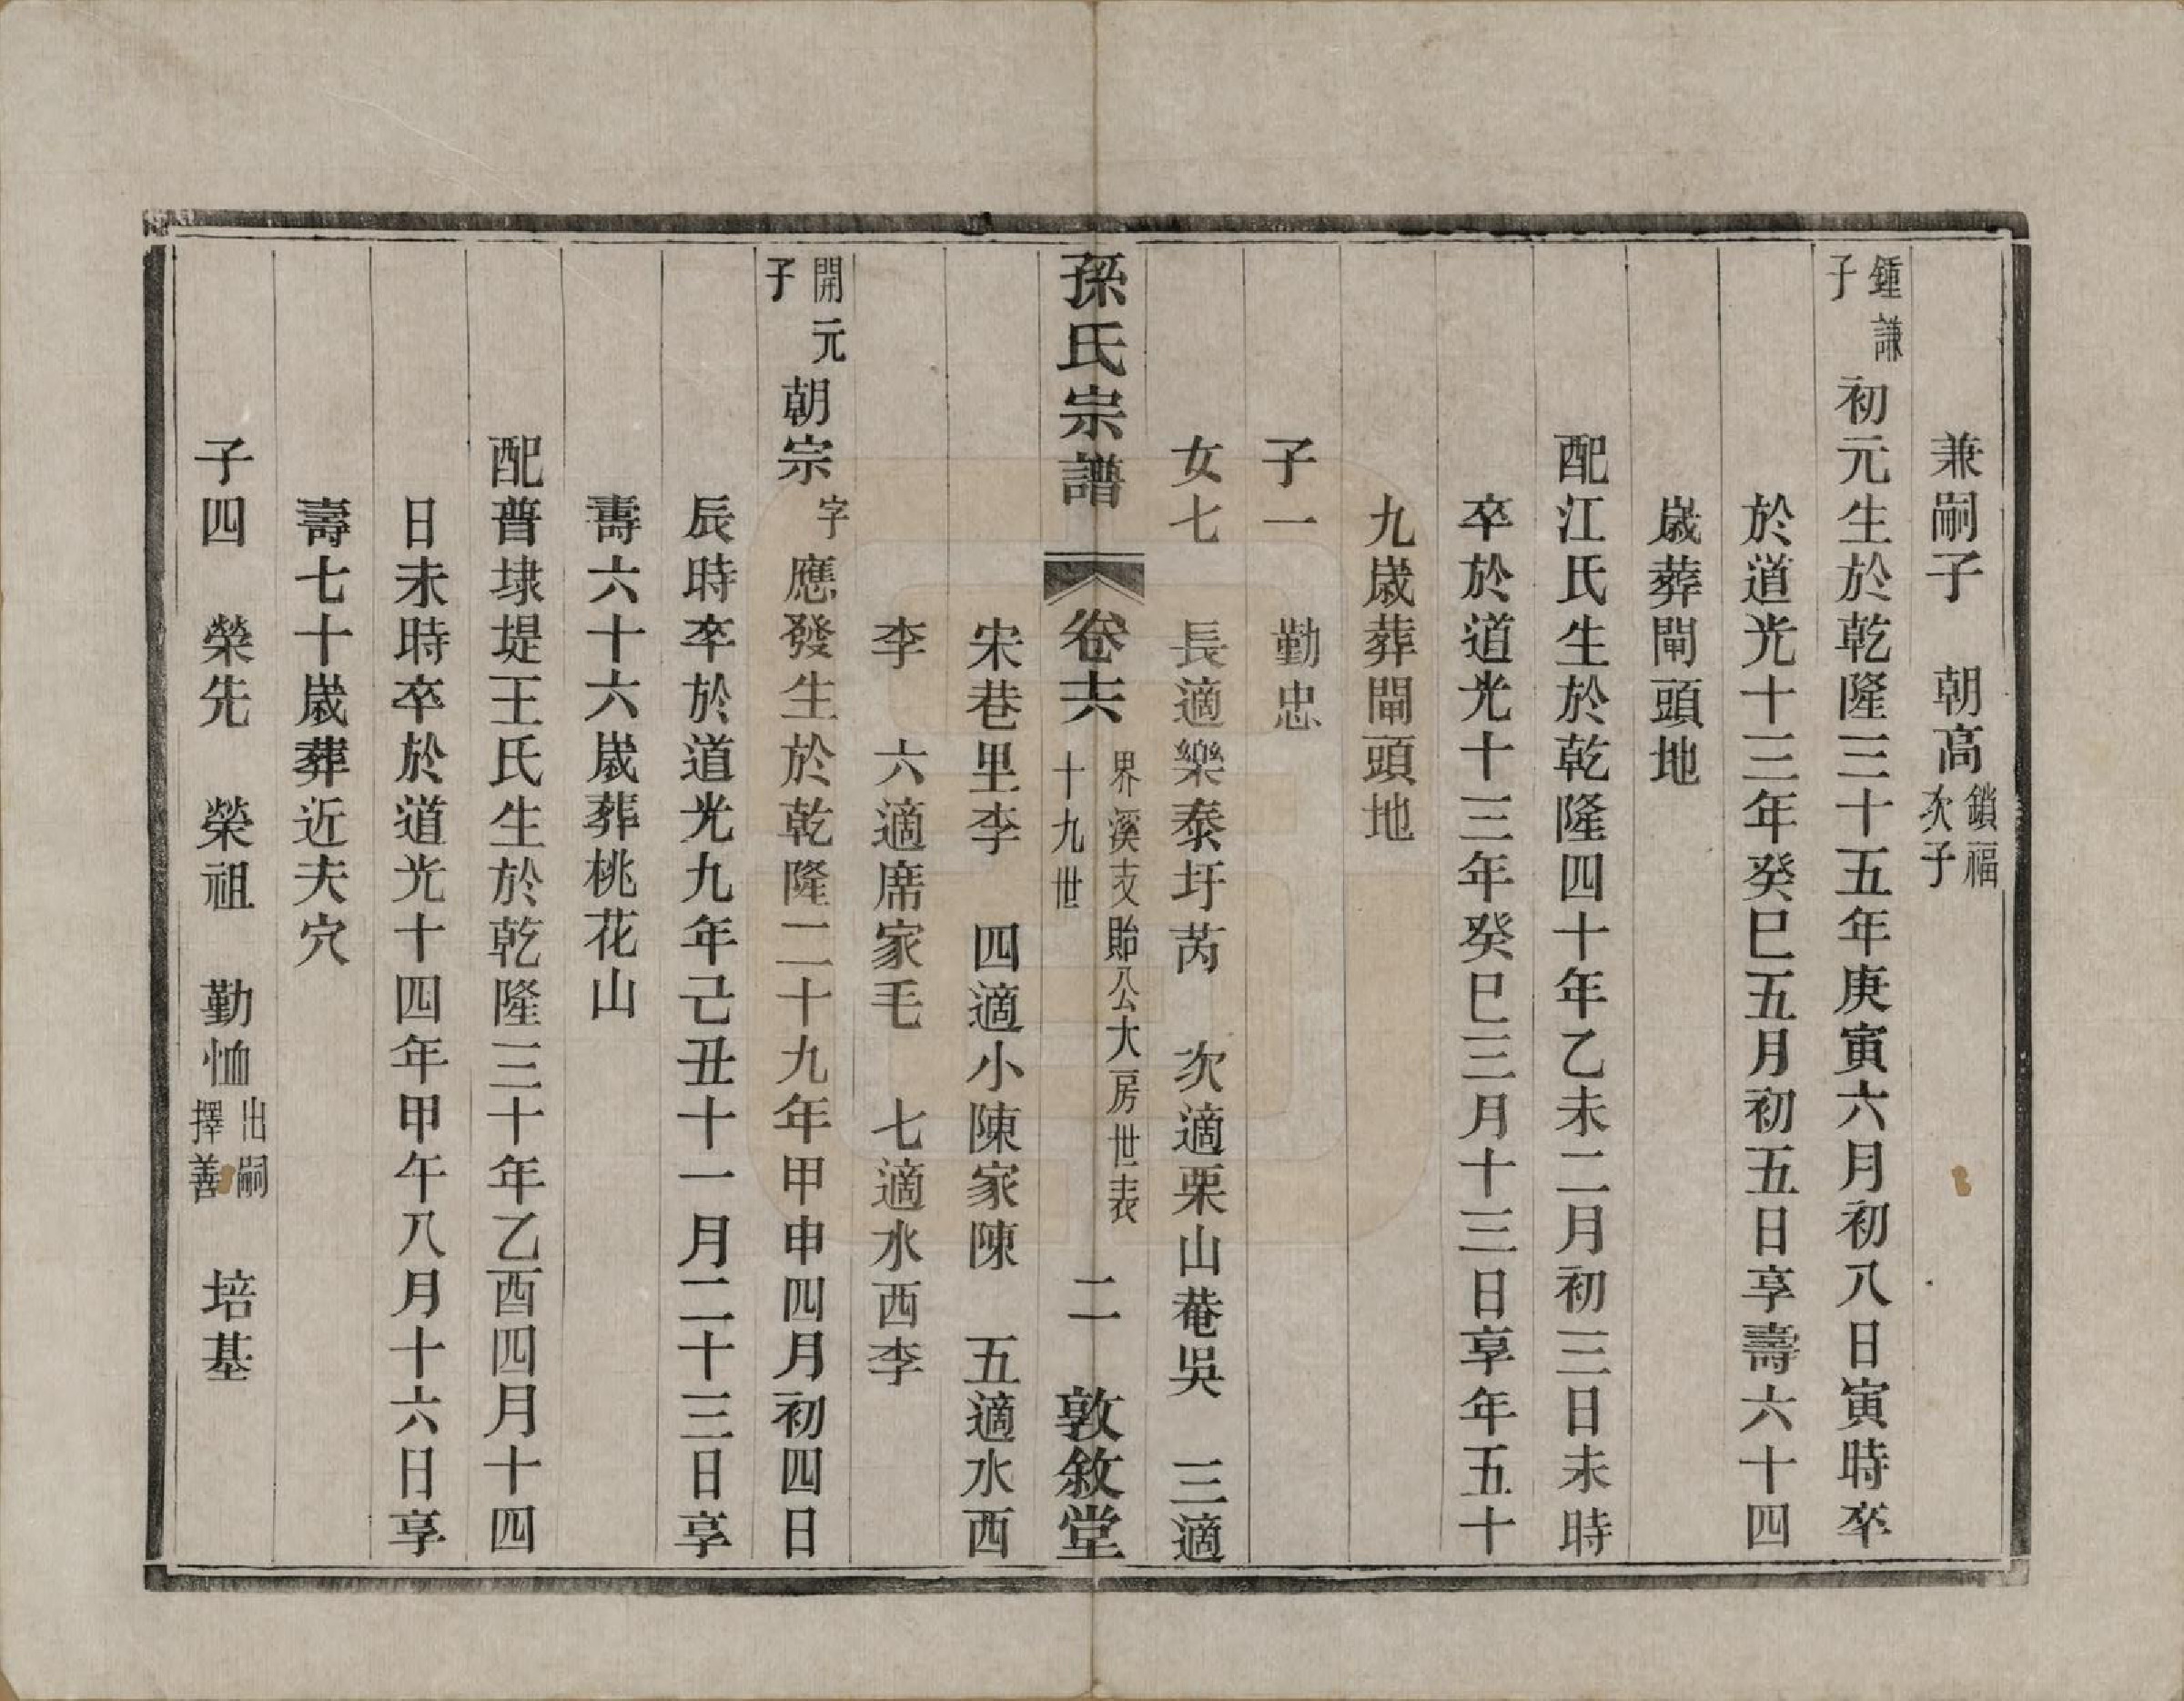 兼嗣子　朝高鎖福次子
鍾謙子初元生於乾隆三十五年庚寅六月初八日寅時卒
於道光十三年癸巳五月初五日享壽六十四
歲葬閘頭地
配江氏生於乾隆四十年乙未二月初三日未時
卒於道光十三年癸巳三月十三日享年五十
九歲葬閘頭地
子一　勤忠
女七　長適樂泰圩芮　次適栗山菴吳　三適
孫氏宗譜　卷十六　界溪支貽公大房世表十九世　二　敦敘堂
宋巷里李　四適小陳家陳　五適水西
李　六適席家毛　七適水西李
開元子朝宗字應發生於乾隆二十九年甲申四月初四日
辰時卒於道光九年己丑十一月二十三日享
壽六十六歲葬桃花山
配普埭堤王氏生於乾隆三十年乙酉四月十四
日未時卒於道光十四年甲午八月十六日享
壽七十歲葬近夫穴
子四　榮先　榮祖　勤恤出嗣擇善　培基